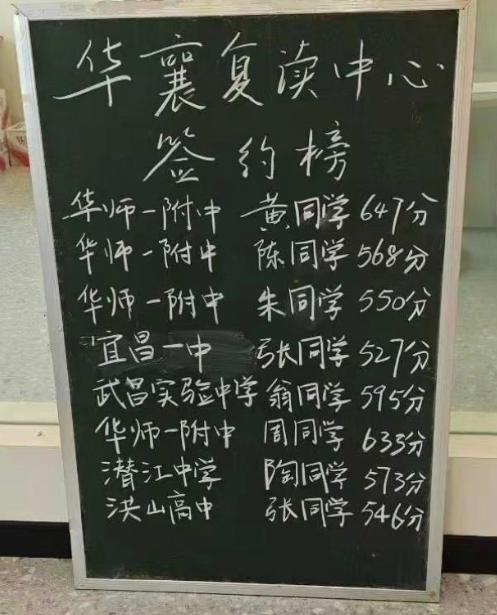 华襄复读中心
签约榜
华师一附中 黄同学 647分
华师一附中 陈同学 568分
华师一附中 朱同学 550分
宜昌一中 张同学 527分
武昌实验中学 翁同学 595分
华师一附中 周同学 633分
潜江中学 陶同学 573分
洪山高中 张同学 546分